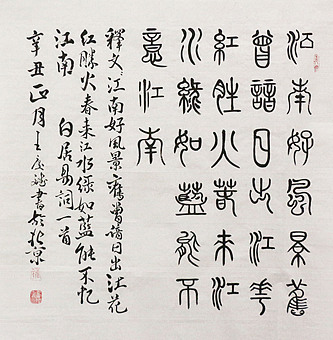 江南好風景舊
曾諳日出江花
紅勝火春來江
水綠如藍能不
意江南
釋文：江南好風景舊曾諳日出江花
红勝火春来江水绿如藍能不忆
江南 白居易詞一首
辛丑正月王書於京